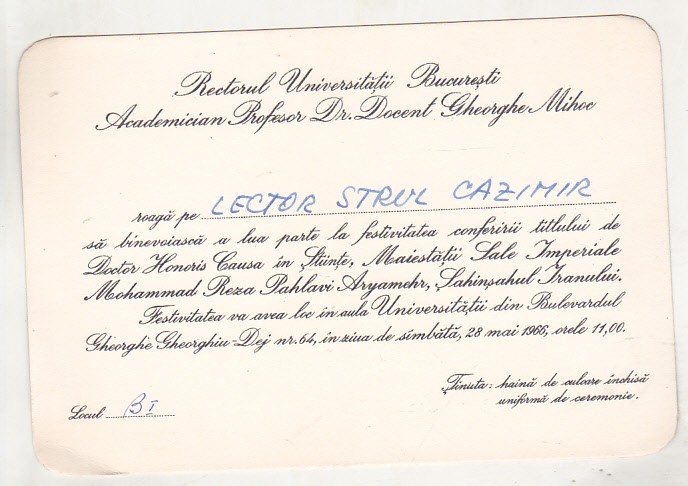 Rectorul Universității București
Academician Profesor Dr. Docent Gheorghe Mihoc
roagă pe LECTOR STRUL CAZIMIR
să binevoiască a lua parte la festivitatea conferirii titlului de
Doctor Honoris Causa în Științe, Maiestății Sale Imperiale
Mohammad Reza Pahlavi Aryamehr, Șahinșahul Iranului.
Festivitatea va avea loc în aula Universității din Bulevardul
Gheorghe Gheorghiu-Dej nr. 64, în ziua de sîmbătă, 28 mai 1966, orele 11,00.
Ținuta: haină de culoare închisă
uniformă de ceremonie.
Locul B I